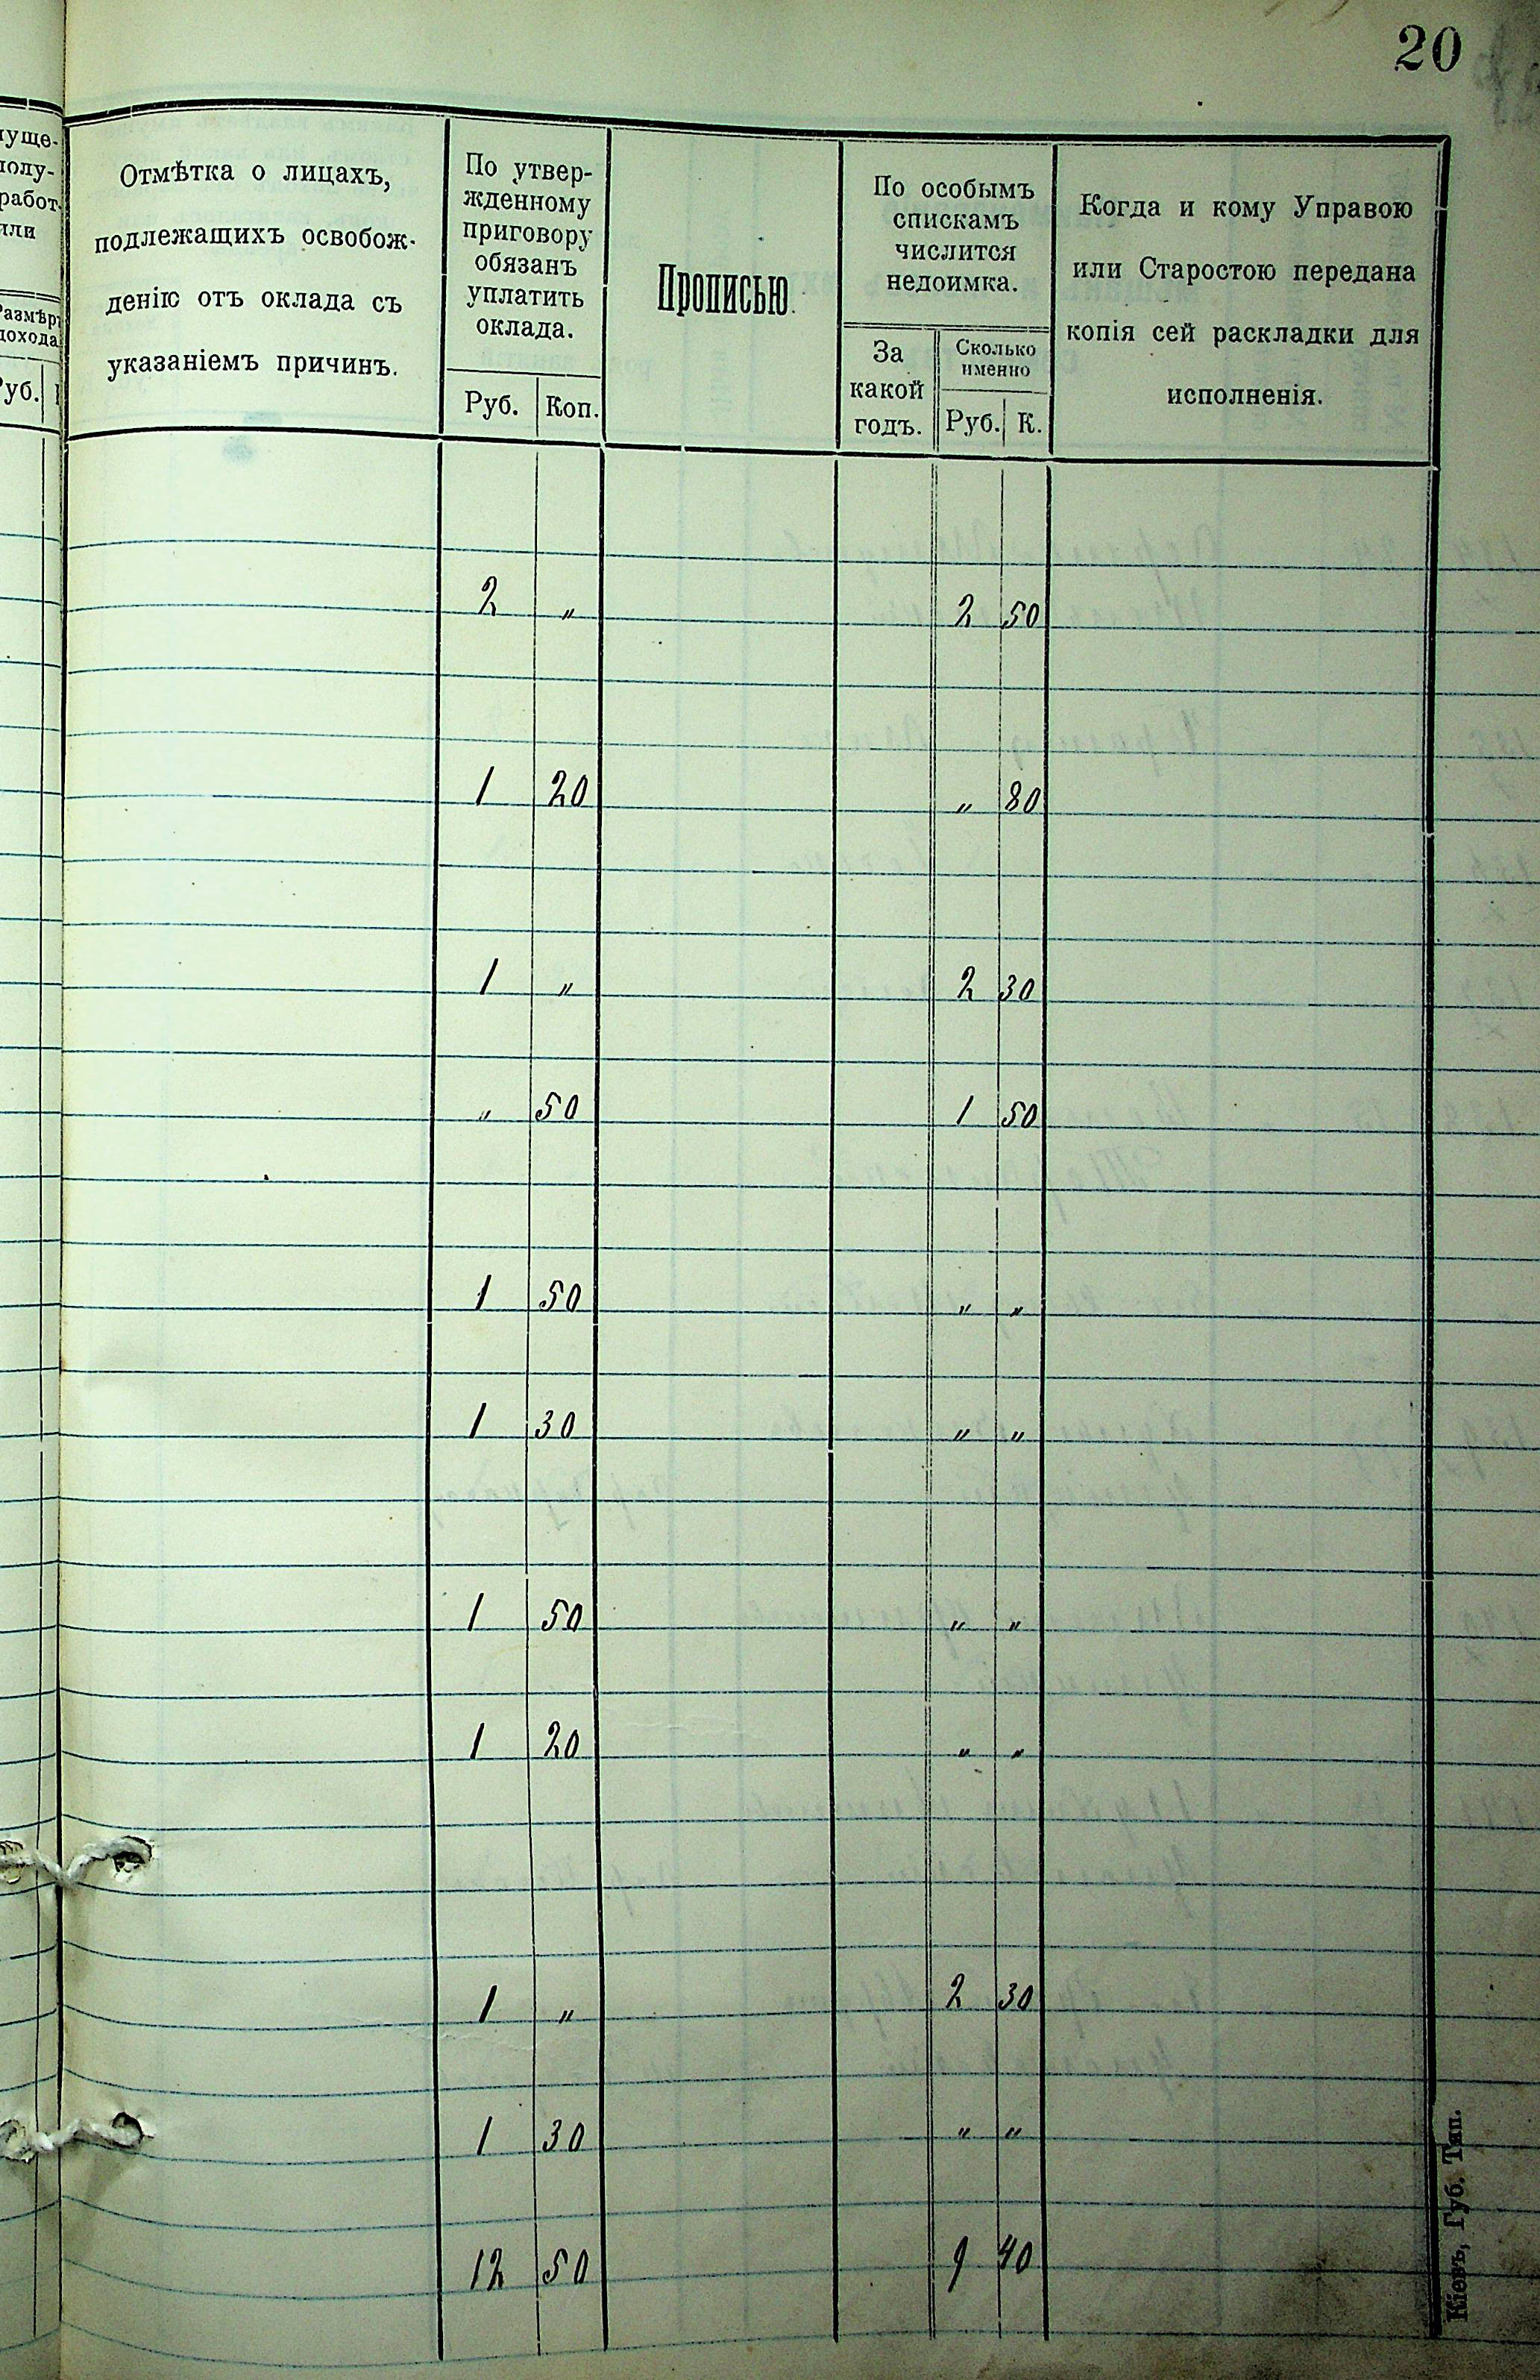 20
уще-
полу-
работ.
или
Размѣръ
дохода
Руб.
Отмѣтка о лицахъ,
подлежащихъ освобож-
денію отъ оклада съ
указаніемъ причинъ.
По утвер-
жденному
приговору
обязанъ
уплатить
оклада.
Руб. Коп.
Прописью.
По особымъ
спискамъ
числится
недоимка.
За
какой
годъ.
Сколько
именно
Руб. К.
Когда и кому Управою
или Старостою передана
копія сей раскладки для
исполненія.
2 " 2 50
1 20 " 80
1 " 2 30
" 50 1 50
1 50 " "
1 30 " "
1 50 " "
1 20 " "
1 " 2 30
1 30 " "
12 50 9 40
Кіевъ, Губ. Тип.